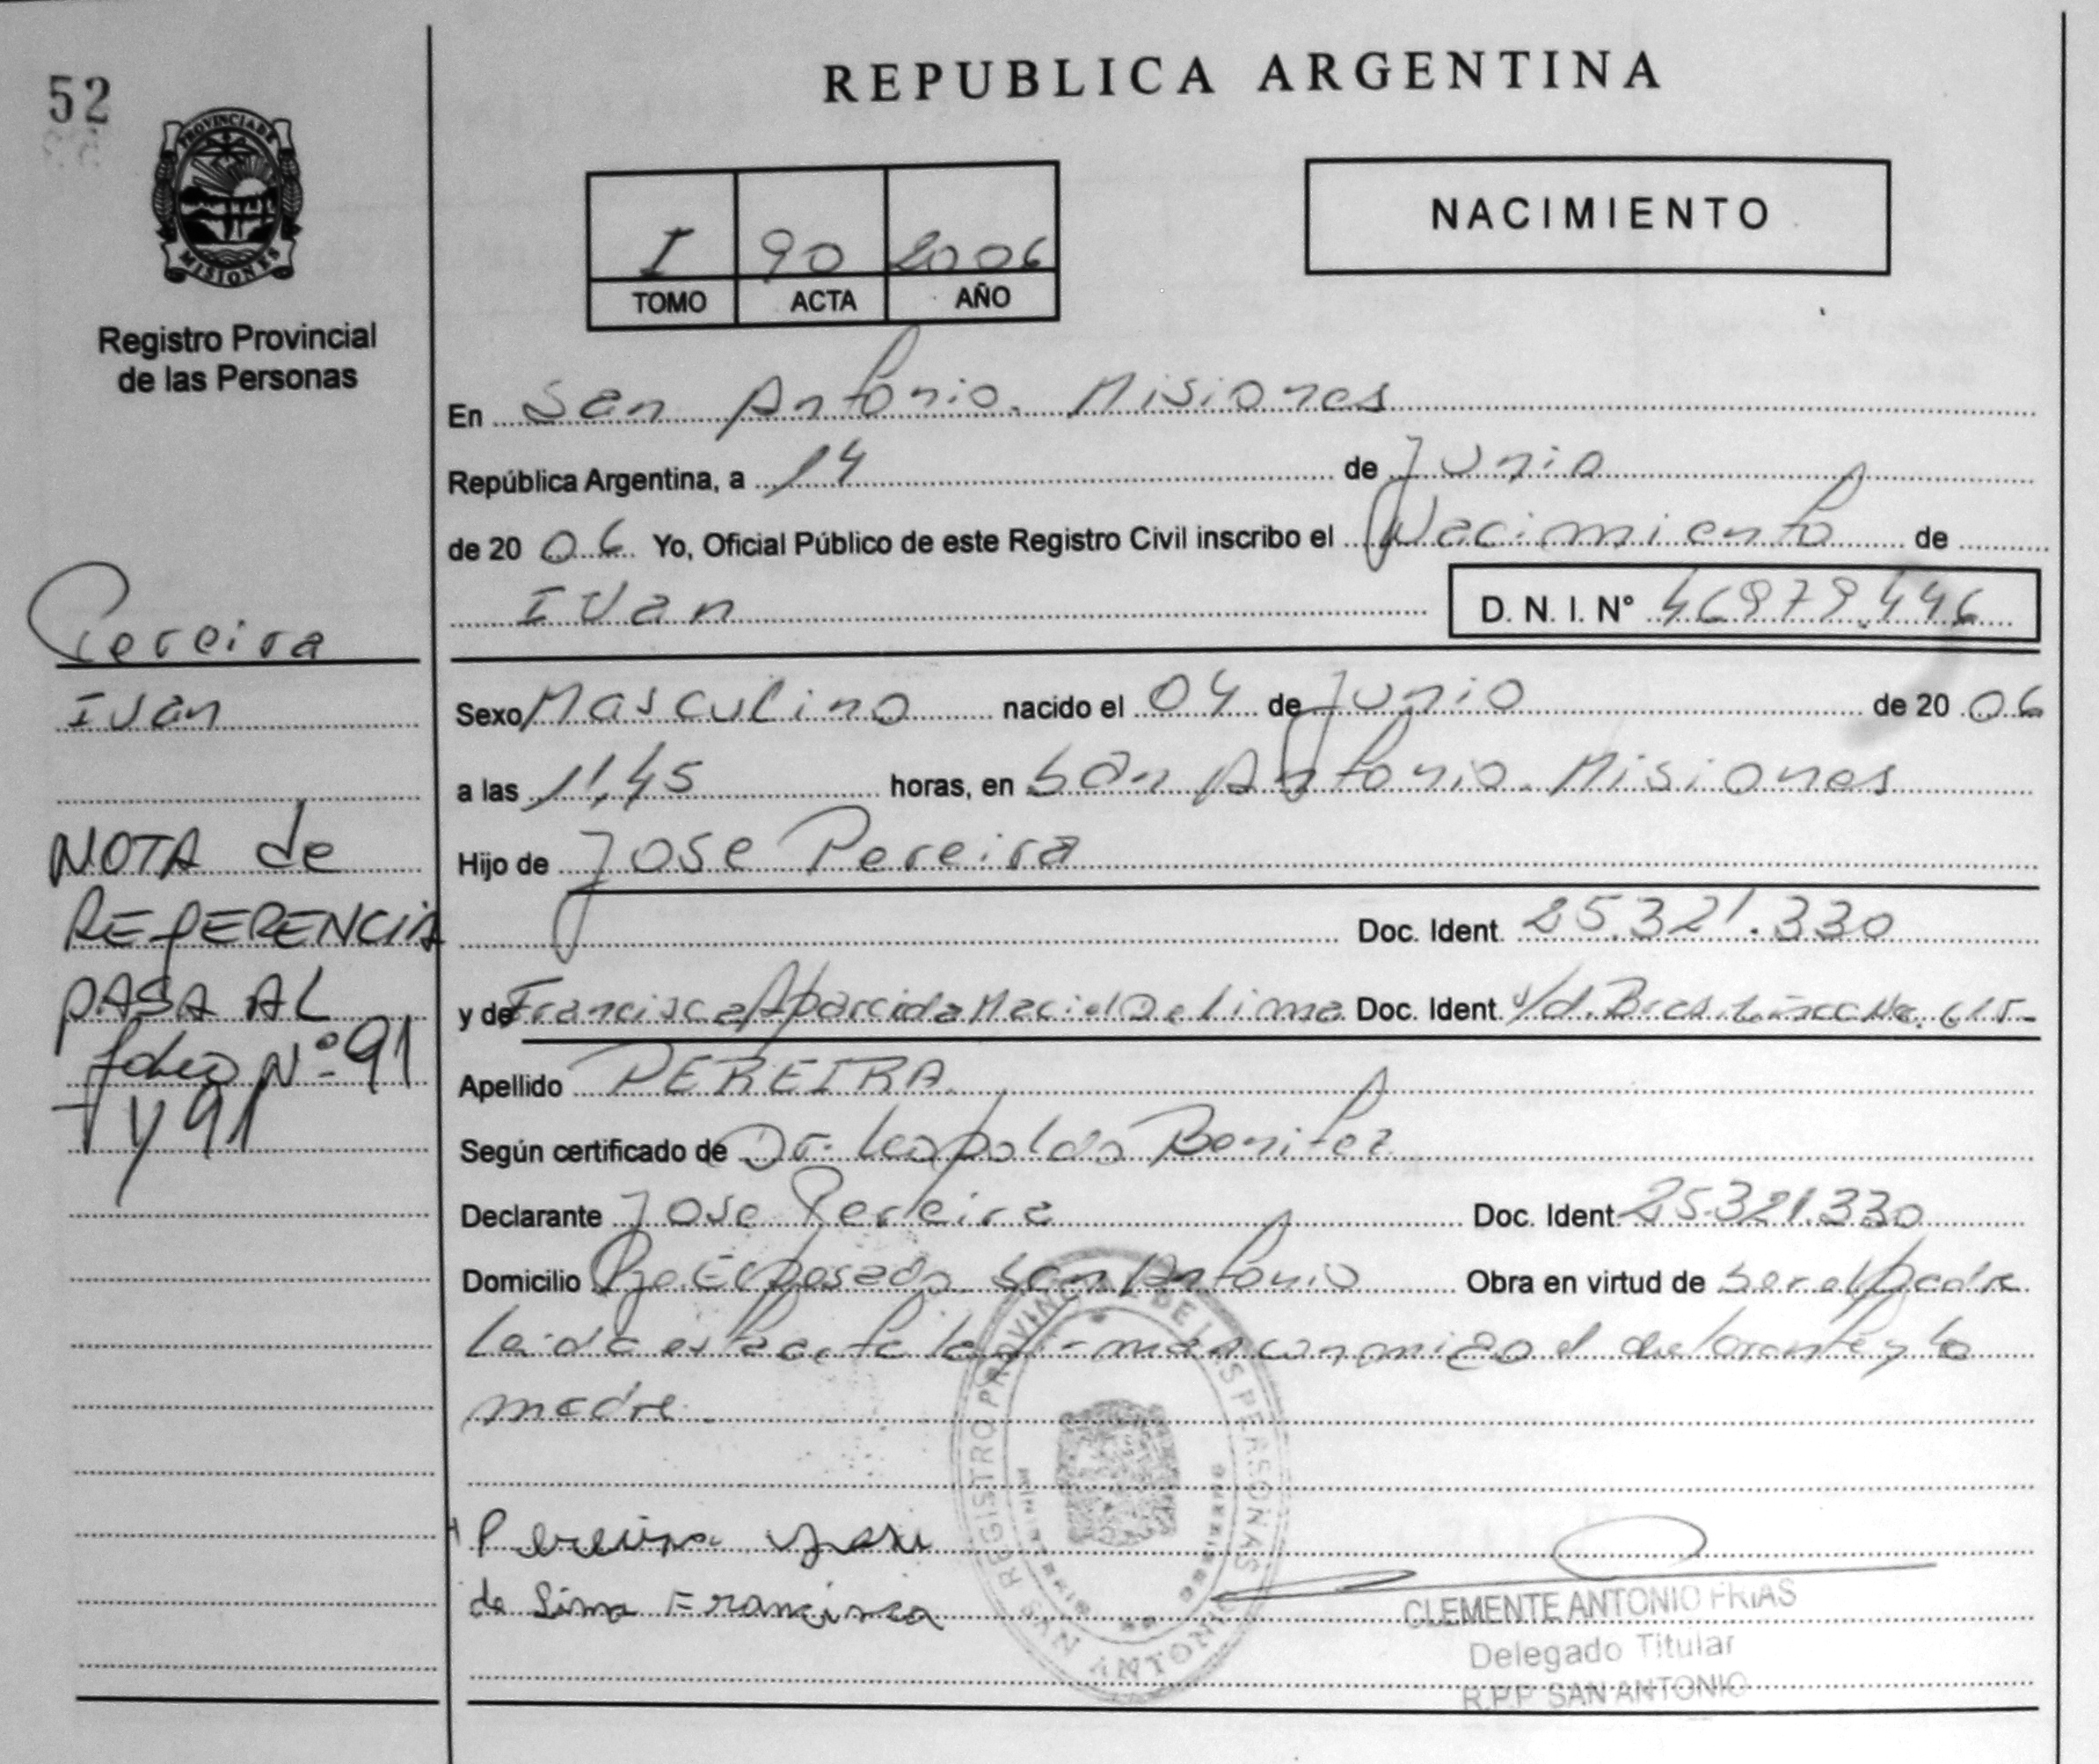 52
PROVINCIA DE
MISIONES
Registro Provincial
de las Personas
REPUBLICA ARGENTINA
I 90 2006
TOMO ACTA AÑO
NACIMIENTO
En San Antonio. Misiones
República Argentina, a 14 de Junio
de 20 06 Yo, Oficial Público de este Registro Civil inscribo el Nacimiento de
Ivan D. N. I. N° 46979.446
Pereira
Ivan
Sexo Masculino nacido el 04 de Junio de 20 06
a las 11,45 horas, en San Antonio. Misiones
Hijo de Jose Pereira
Doc. Ident. 25.321.330
y de Francisca Aparcida Maciel De Lima Doc. Ident.
Apellido PEREIRA
Según certificado de Dr. Leopoldo Benitez
Declarante Jose Pereira Doc. Ident. 25.321.330
Domicilio San Antonio Obra en virtud de Ser el padre
Leida esta acta la conmigo el declarante y la
madre.
NOTA de
REFERENCIA
PASA AL
folio N° 91
y 91
Pereira Jose
de Lima Francisca
REGISTRO PROVINCIAL DE LAS PERSONAS
SAN ANTONIO
CLEMENTE ANTONIO FRIAS
Delegado Titular
R.P.P SAN ANTONIO